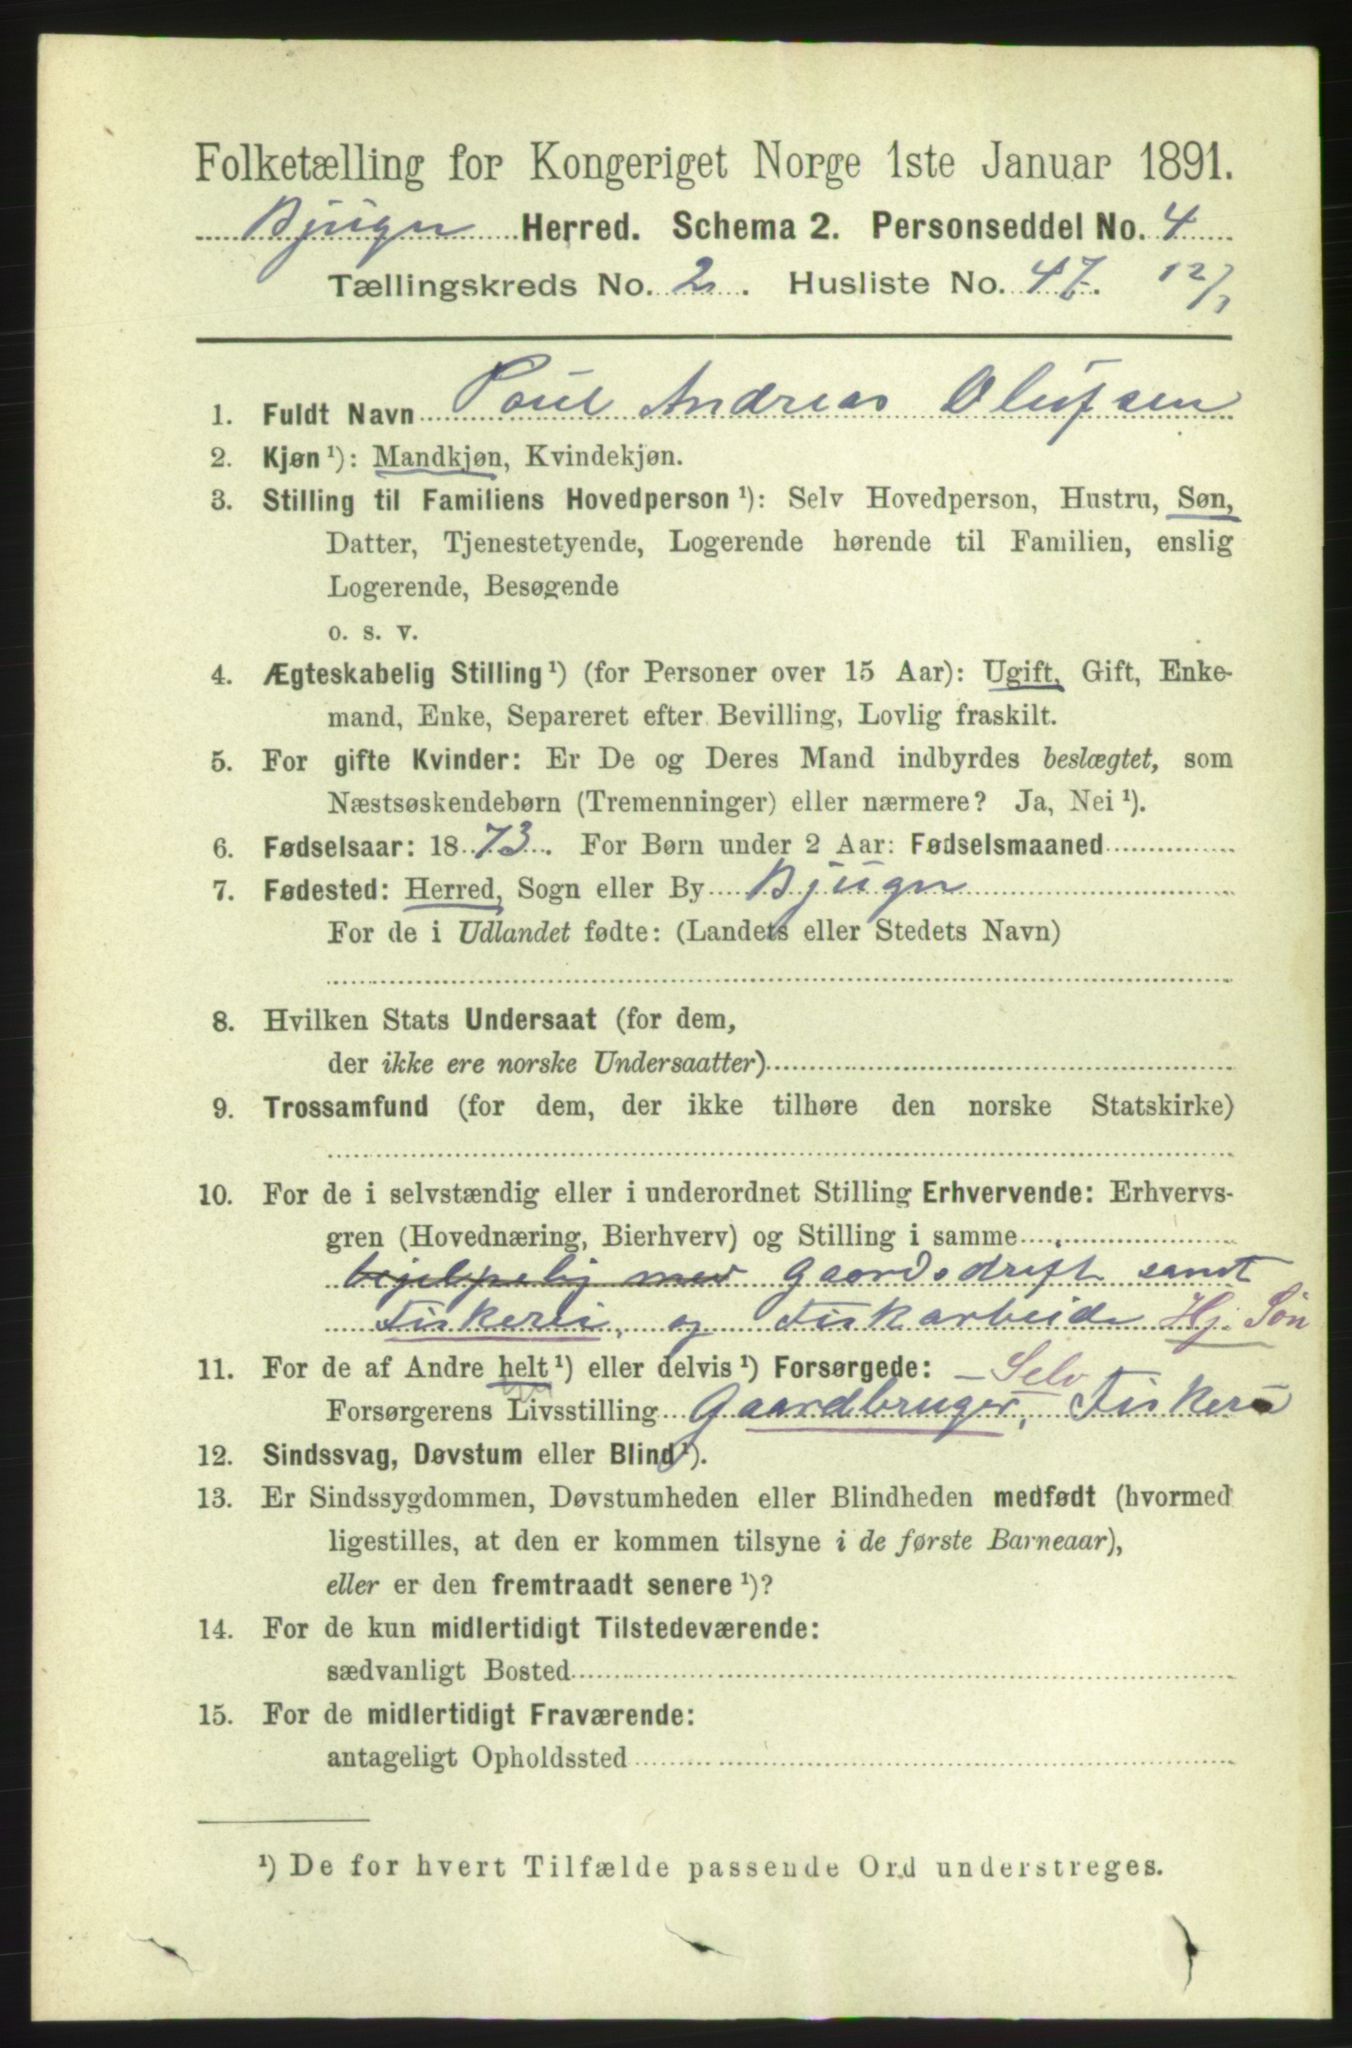 Folketælling for Kongeriget Norge 1ste Januar 1891.
Bjugn Herred. Schema 2. Personseddel No. 4
Tællingskreds No. 2. Husliste No. 47. 12/1
1. Fuldt Navn Poul Andreas Olufsen
2. Kjøn ¹): Mandkjøn, Kvindekjøn.
3. Stilling til Familiens Hovedperson ¹): Selv Hovedperson, Hustru, Søn,
Datter, Tjenestetyende, Logerende hørende til Familien, enslig
Logerende, Besøgende
o. s. v.
4. Ægteskabelig Stilling ¹) (for Personer over 15 Aar): Ugift, Gift, Enke-
mand, Enke, Separeret efter Bevilling, Lovlig fraskilt.
5. For gifte Kvinder: Er De og Deres Mand indbyrdes beslægtet, som
Næstsøskendebørn (Tremenninger) eller nærmere? Ja, Nei ¹).
6. Fødselsaar: 1873. For Børn under 2 Aar: Fødselsmaaned
7. Fødested: Herred, Sogn eller By Bjugn
For de i Udlandet fødte: (Landets eller Stedets Navn)
8. Hvilken Stats Undersaat (for dem,
der ikke ere norske Undersaatter)
9. Trossamfund (for dem, der ikke tilhøre den norske Statskirke)
10. For de i selvstændig eller i underordnet Stilling Erhvervende: Erhvervs-
gren (Hovednæring, Bierhverv) og Stilling i samme
behjelpelig med Gaardsdrift samt
Fiskeri, og Fiskarbeide Hj. Søn
11. For de af Andre helt ¹) eller delvis ¹) Forsørgede: – Selv
Forsørgerens Livsstilling Gaardbruger, Fisker
12. Sindssvag, Døvstum eller Blind ¹).
13. Er Sindssygdommen, Døvstumheden eller Blindheden medfødt (hvormed
ligestilles, at den er kommen tilsyne i de første Barneaar),
eller er den fremtraadt senere ¹)?
14. For de kun midlertidigt Tilstedeværende:
sædvanligt Bosted
15. For de midlertidigt Fraværende:
antageligt Opholdssted
¹) De for hvert Tilfælde passende Ord understreges.